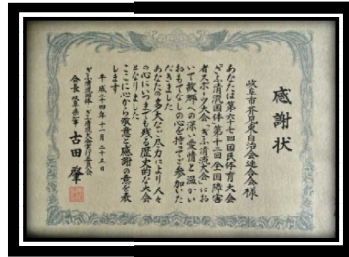 感謝状
岐阜市芥見東自治会連合会様
あなたは第六十七回国民体育大会
「ぎふ清流国体・第十二回全国障害
者スポーツ大会「ぎふ清流大会」にお
いて故郷への深い愛情と温かい
おもてなしの心を持ってご参加いた
だきました
あなたの多大なご尽力により人々
の心にいつまでも残る歴史的な大会
となりました
ここに心から敬意と感謝の意を表
します
平成二十四年十一月二十五日
ぎふ清流国体・ぎふ清流大会実行委員会
会長 岐阜県知事 古田 肇